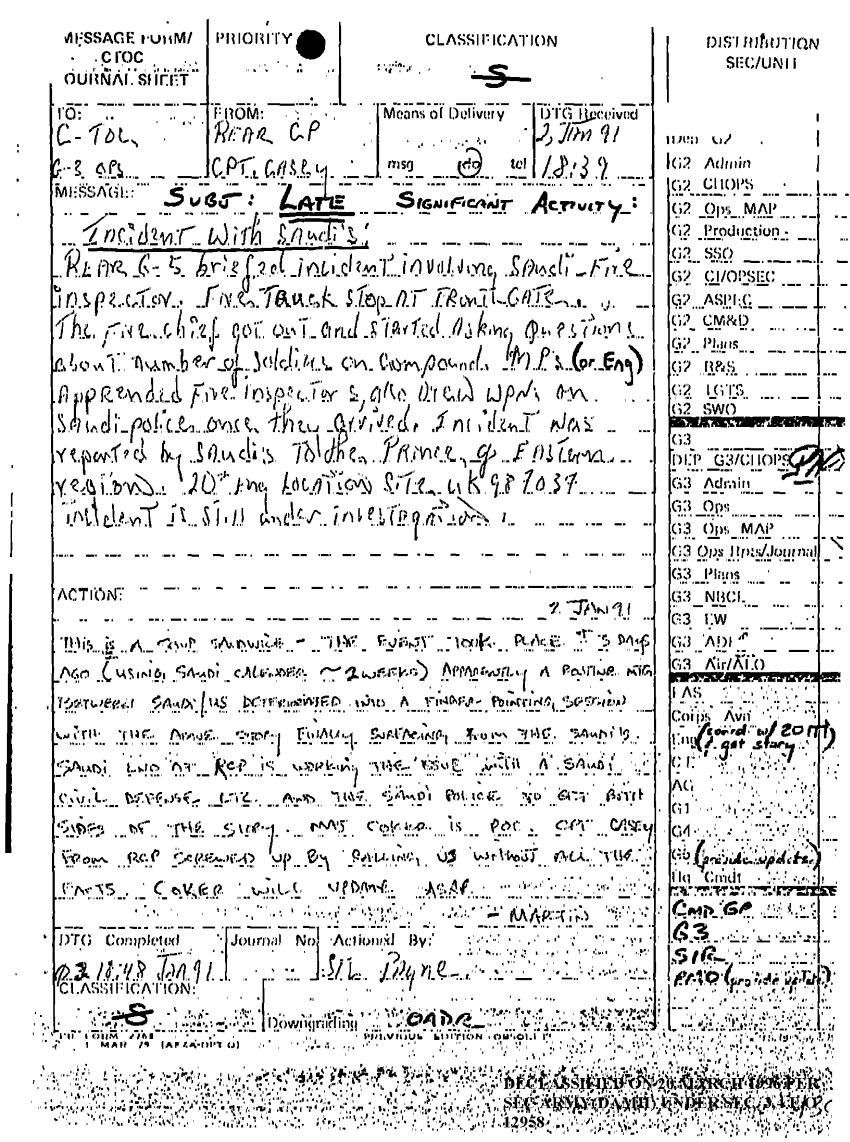 MESSAGE FORM/
CTOC
JOURNAL SHEET
PRIORITY
CLASSIFICATION
S
DISTRIBUTION
SEC/UNIT
TO:
C-TOC,
G-3 OPS
FROM:
REAR CP
CPT. CASEY
Means of Delivery
msg tel
DTG Received
2, JAN 91
18:39
MESSAGE: SUBJ: LATE SIGNIFICANT ACTIVITY:
Incident With Saudi's:
REAR G-5 briefed incident involving Saudi-Fire
inspector. Fire Truck stop AT Front GATE.
The Fire chief got out and started Asking Questions
about number of soldiers on compound. MP's (or Eng)
Apprended Fire inspectors, also drew wpns on
Saudi-polices once they arrived. Incident was
reported by Saudis To the Prince of Eastern
region. 20th Eng Location Site UK 987037
incident is still under investigation.
ACTION:
2 JAN 91
THIS IS A SANDWICH - "THE EVENT" TOOK PLACE 5 DAYS
AGO (USING SAUDI CALENDER ~2 WEEKS) APPARENTLY A ROUTINE MTG
BETWEEN SAUDI/US DETERIORATED INTO A FINGER-POINTING SESSION
WITH THE ABOVE STORY FINALLY SURFACING FROM THE SAUDI'S.
SAUDI LNO AT RCP IS WORKING THE "ISSUE" WITH A SAUDI
CIVIL DEFENSE LTC. AND THE SAUDI POLICE TO GET BOTH
SIDES OF THE STORY. MAJ COKER IS POC. CPT CASEY
FROM RCP SCREWED UP BY CALLING US WITHOUT ALL THE
FACTS. COKER WILL UPDATE ASAP
- MARTIN
DTG Completed
18:48 JAN 91
Journal No
Actioned By:
Payne
CLASSIFICATION:
S
Downgrading OADR
1 MAR 79 (AFZA-DPT-O)
PREVIOUS EDITION OBSOLETE
Dep G2
G2 Admin
G2 CHOPS
G2 Ops MAP
G2 Production
G2 SSO
G2 CI/OPSEC
G2 CM&D
G2 Plans
G2 R&S
G2 SWO
G3
DEP G3/CHOPS
G3 Admin
G3 Ops
G3 Ops MAP
G3 Ops Rpts/Journal
G3 Plans
G3 NBCE
G3 EW
G3 Air/ALO
FAS
Corps Avn
Eng (coord w/ 20TH
& get story)
AG
G1
G4
G5 (provide updates)
Hq Cmdt
CMD GP
G3
SIR
PMO (provide update)
DECLASSIFIED ON 20 MARCH 1996 PER
SEC ARMY (DAMH) UNDER SEC 3.4 E.O.
12958